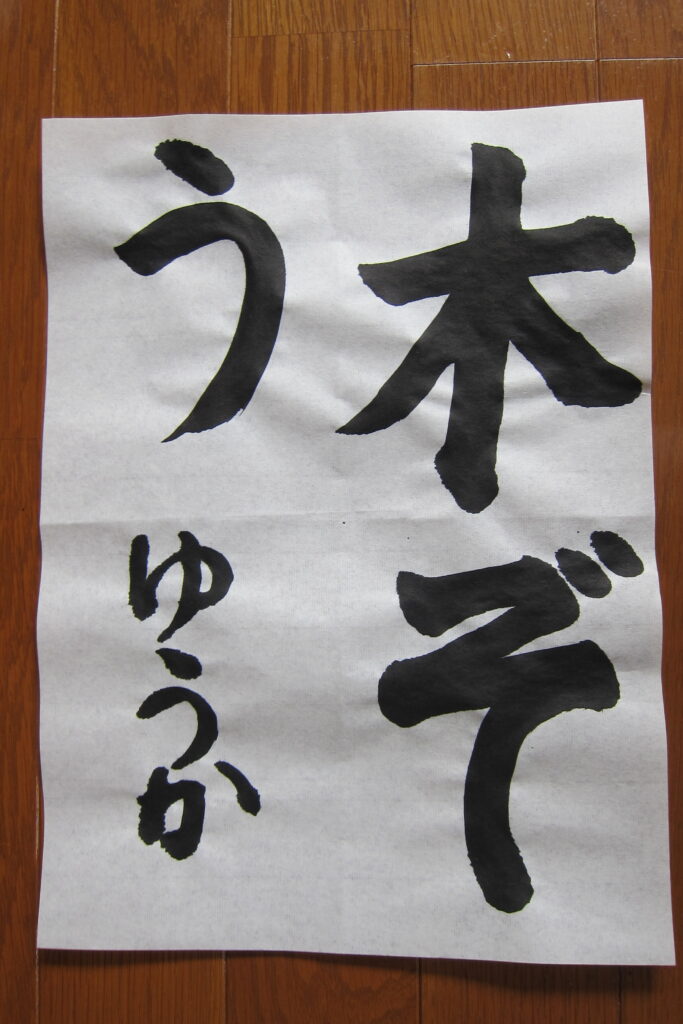 木ぞ
う
ゆうか